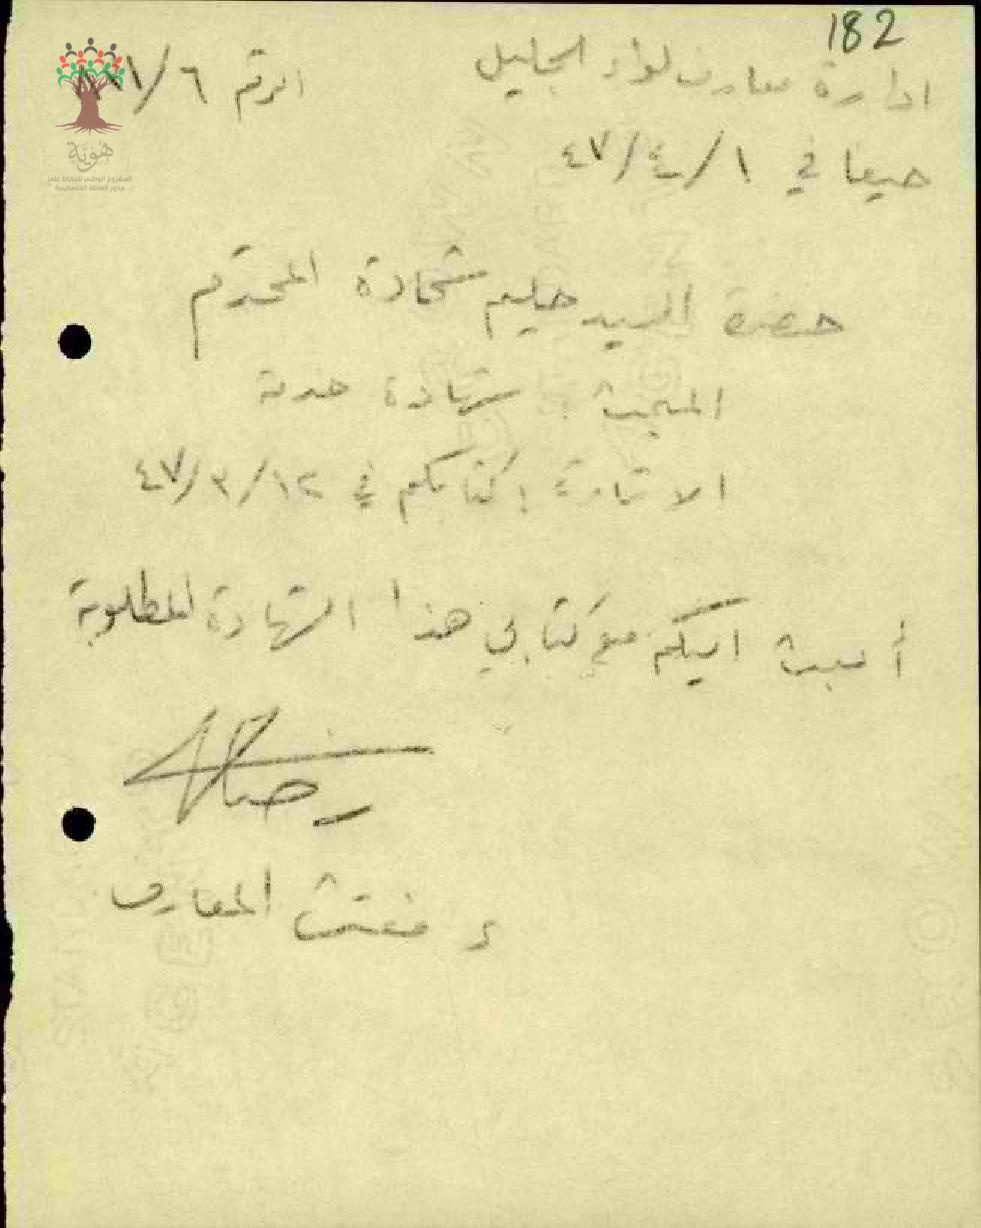 182
ادارة معارف لواء الجليل
الرقم ٦/
حيفا في ١/٤/٤٧
حضرة السيد حليم شحادة المحترم
المبحث : شهادة خدمة
الاشارة : كتابكم في ١٢/٣/٤٧
أبعث اليكم مع كتابي هذا الشهادة المطلوبة
ع مفتش المعارف
هوية
المشروع الوطني للحفاظ على
جذور العائلة الفلسطينية